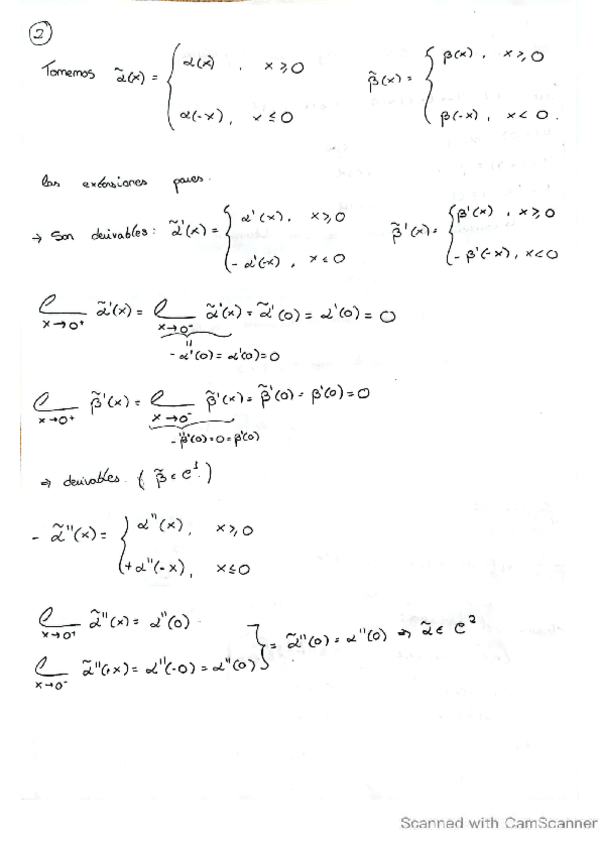 2
Tomemos α̃(x) = { α(x), x ≥ 0 β̃(x) = { β(x), x ≥ 0
α(-x), x ≤ 0 β(-x), x < 0.
las extensiones pares.
→ Son derivables: α̃'(x) = { α'(x), x ≥ 0 β̃'(x) = { β'(x), x ≥ 0
- α'(-x), x ≤ 0 - β'(-x), x < 0
l x→0⁺ α̃'(x) = l x→0⁻ α̃'(x) = α̃'(0) = α'(0) = 0
"
- α'(0) = α'(0) = 0
l x→0⁺ β̃'(x) = l x→0⁻ β̃'(x) = β̃'(0) = β'(0) = 0
"
- β'(0) = 0 = β'(0)
⇒ derivables. ( β̃ ∈ C¹. )
- α̃''(x) = { α''(x), x ≥ 0
+ α''(-x), x ≤ 0
l x→0⁺ α̃''(x) = α''(0)
} = α̃''(0) = α''(0) ⇒ α̃ ∈ C²
l x→0⁻ α̃''(+x) = α''(-0) = α''(0)
Scanned with CamScanner